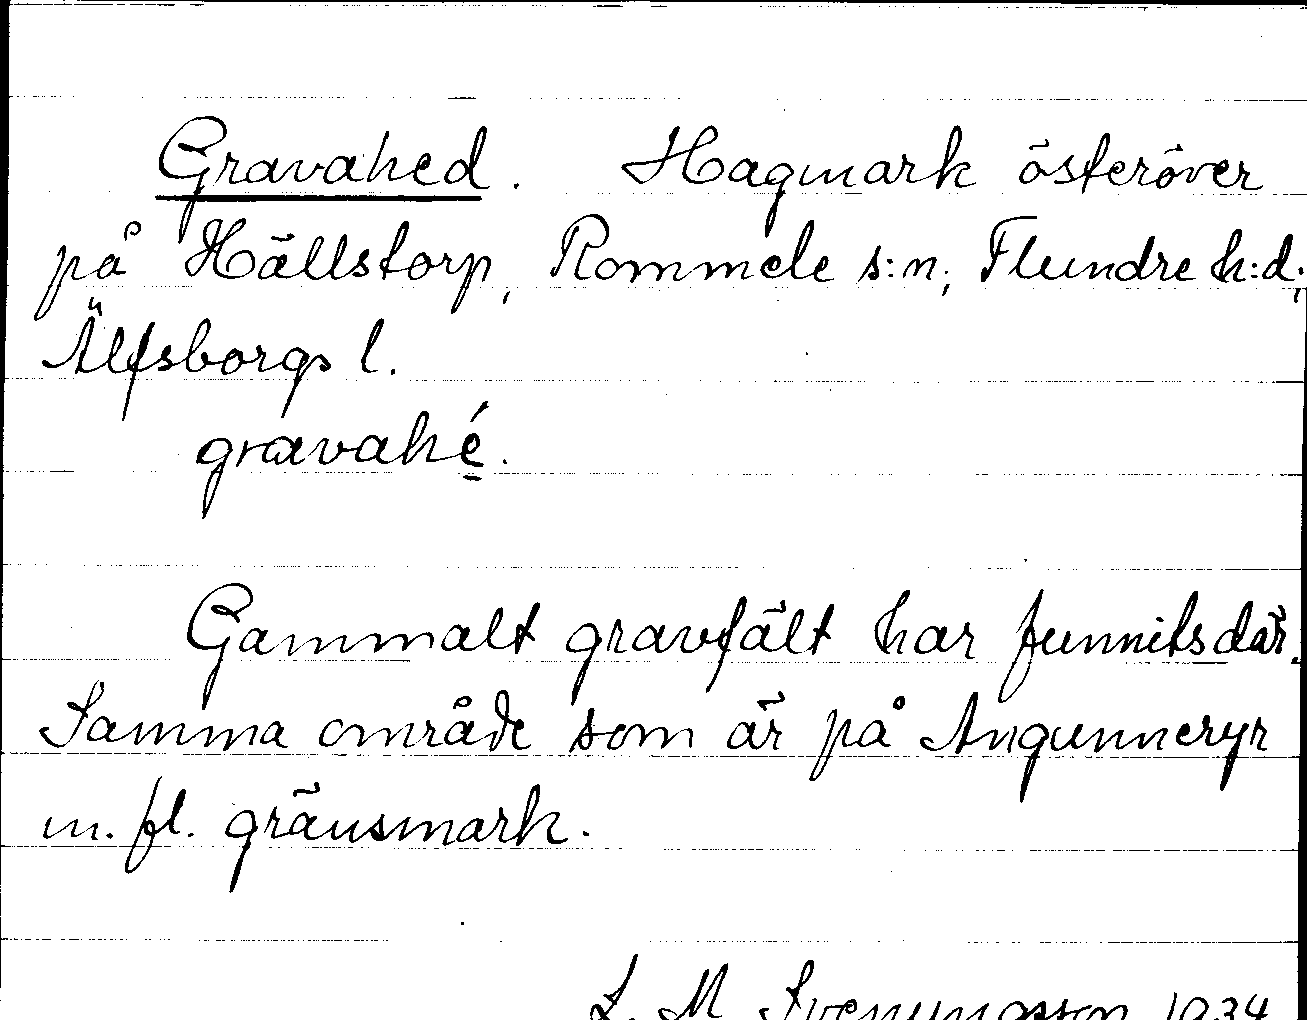 Gravahed. Hagmark österöver
på Hällstorp, Rommele s:n, Flundre h:d,
Älfsborgs l.
gravahé.
Gammalt gravfält har funnits där.
Samma område som är på Angunneryr
m. fl. gränsmark.
L. M. Svenungsson 1934